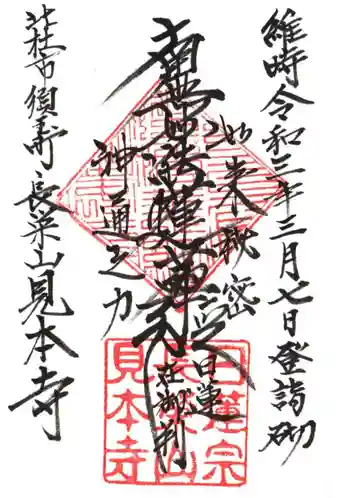 維時令和三年三月七日登詣砌
如来秘密
南無妙法蓮華経
神通之力
日蓮
在御判
北杜市須
長栄山見本寺
日蓮宗
長栄山
見本寺